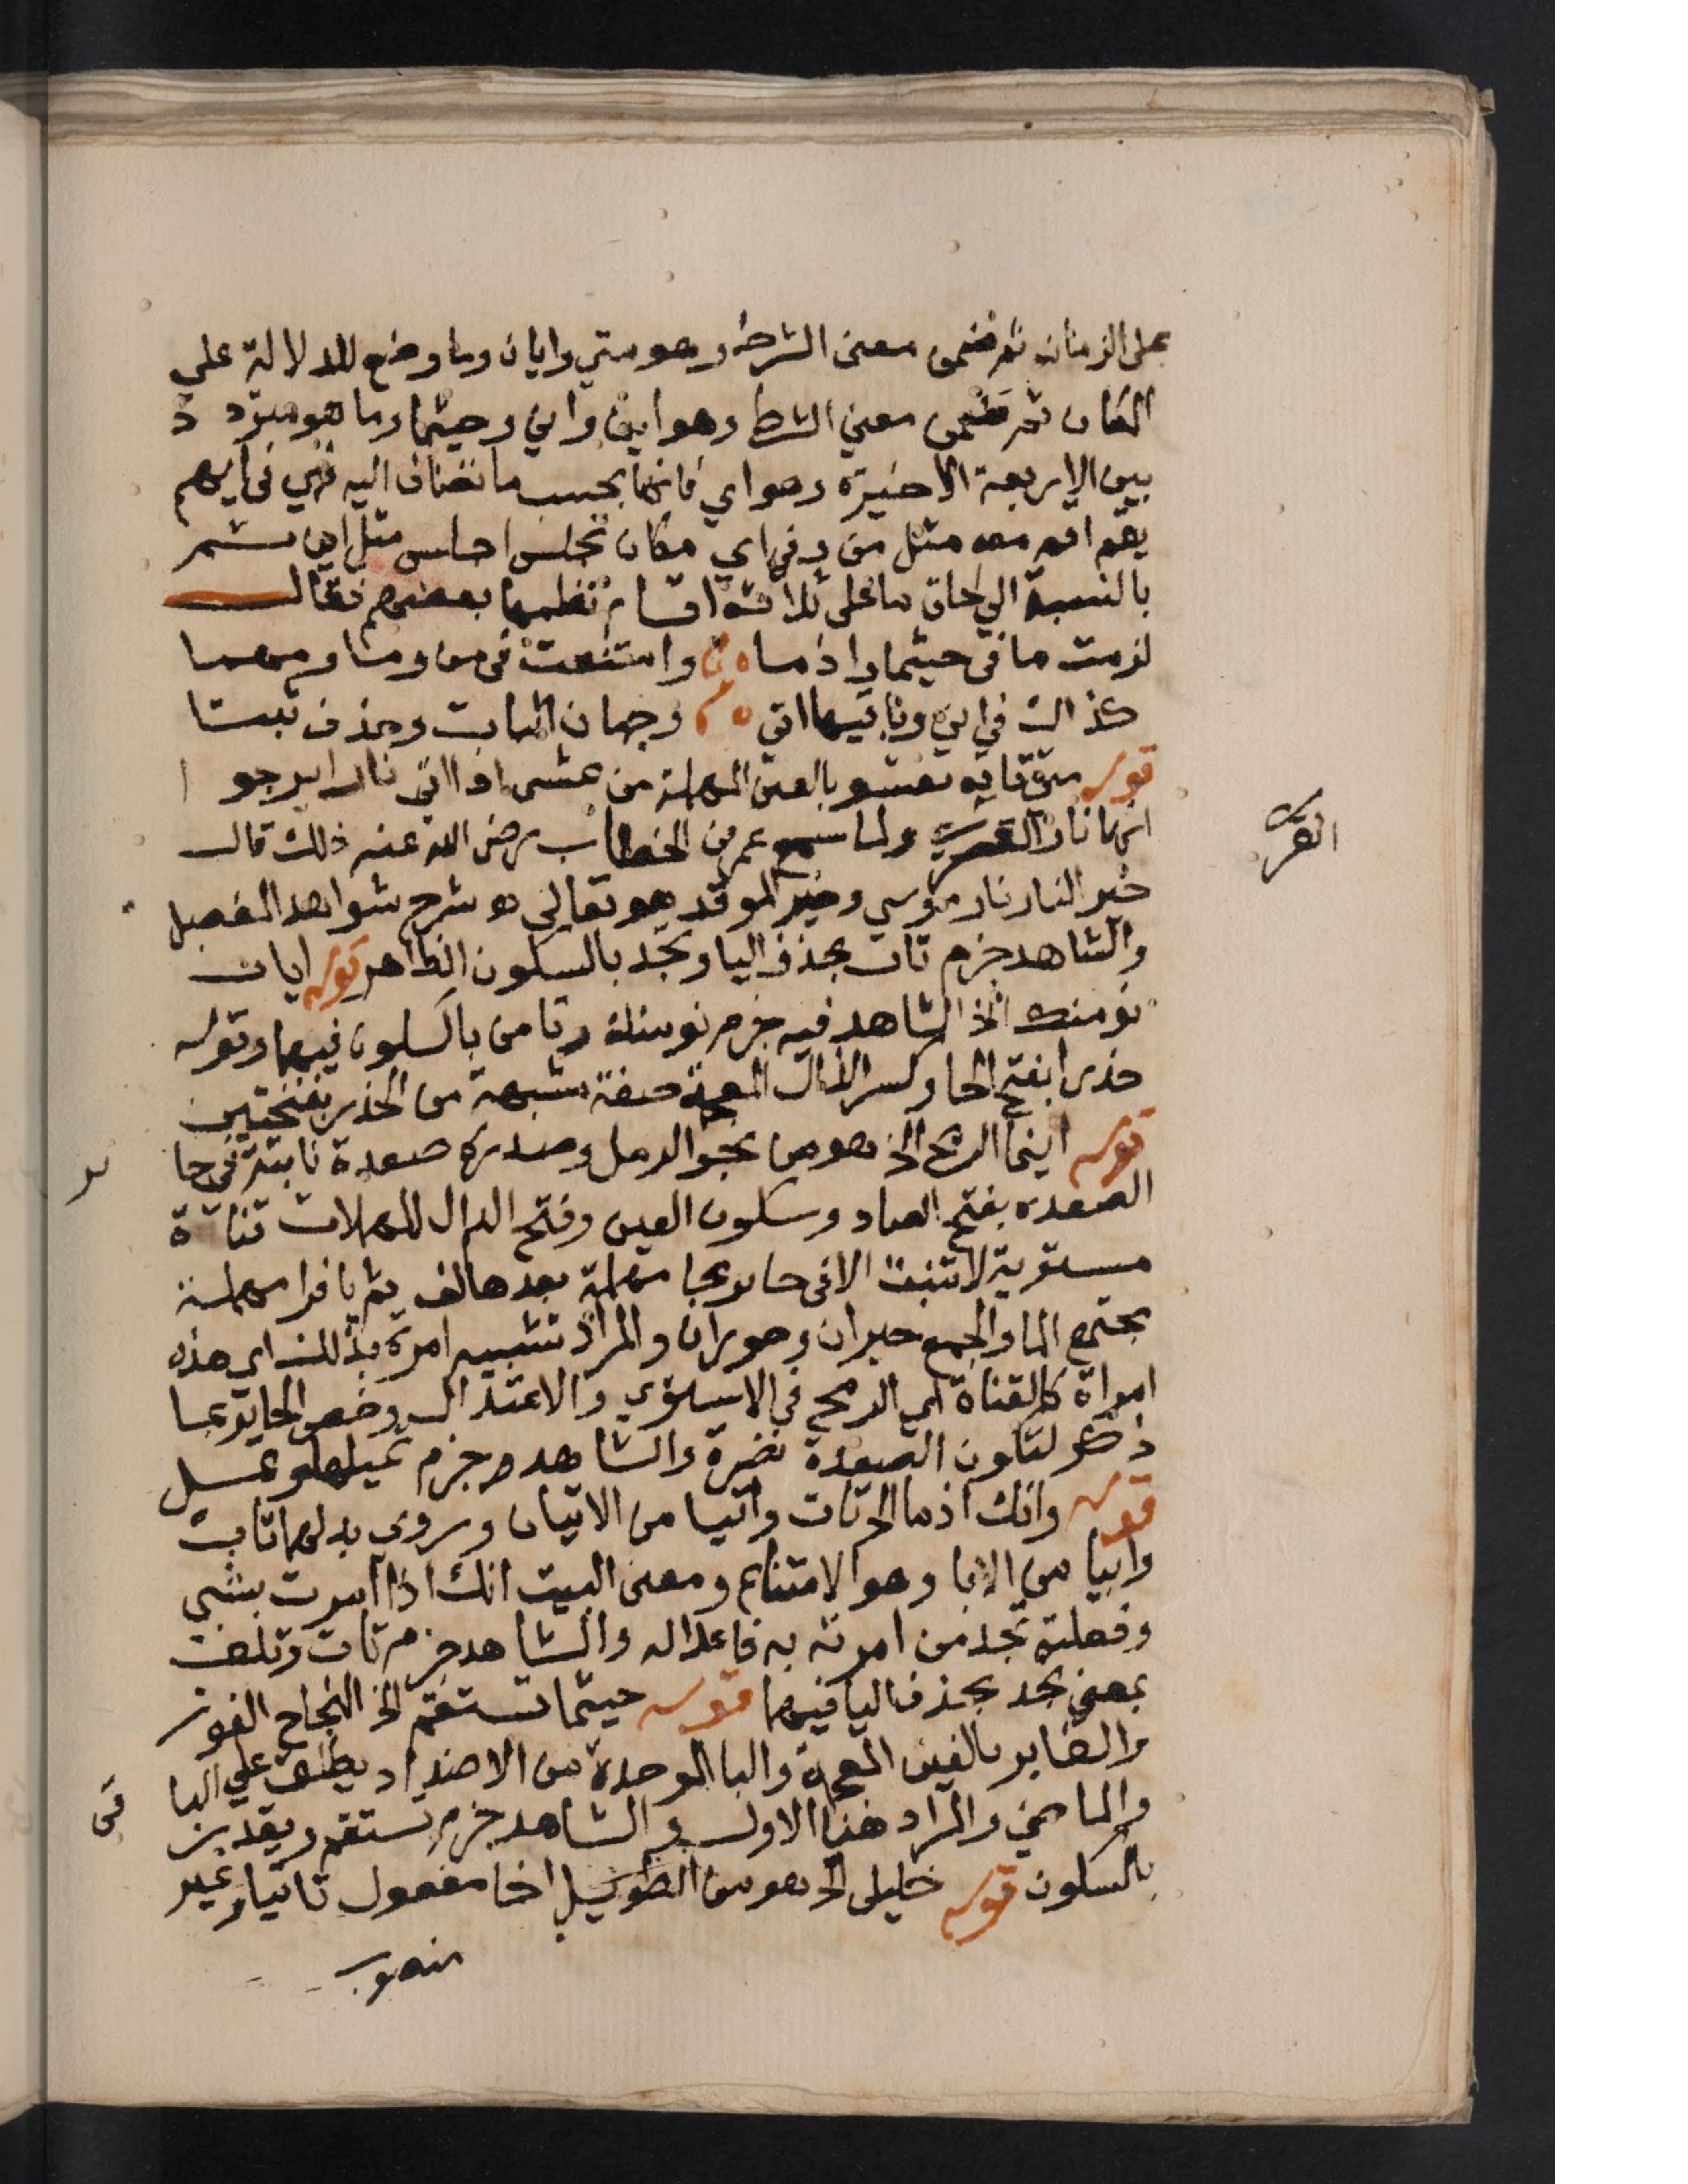 على الزمان ثم ضمن معنى الشرط وهو متي وايان وما وضع للدلالة علي
المكان ثم ضمن معني الشرط وهو اين واني وحيثما وما هو متردد
بين الاربعة الاخيرة وهو اي فانها بحسب ما تضاف اليه فهي في ايهم
يقم اقم معه مثل من وفي اي مكان تجلس اجلس مثل اين ثم
بالنسبة الي لحاق ما على ثلاثة اقسام نظمها بعضهم فقال
لزمت ما في حيثما واذ ما وامتنعت في من وما ومهما
كذاك في اني وباقيها اتي وجهان اثبات وحذف ثبتا
قوله متي تاته تعشو بالعين المهملة من عشى اذا اتي نارا يرجو
انها نار القرى ولما سمع عمر بن الخطاب رضي الله عنه ذلك قال
القرى
خير النار نار موسي وخير الموقد هو تعالي اه شرح شواهد المفصل
والشاهد جزم تات بحذف اليا وتجد بالسكون الظاهر قوله ايان
نومنك الخ الشاهد فيه جزم نومنك وتامن بالسكون فيهما وقوله
حذرا بفتح الحا وكسر الذال المعجمة صفة مشبهة من الحذر بفتحتين
قوله اينما الريح الخ هو من بحر الرمل وصدره صعدة نابتة في حا
ير
الصعدة بفتح الصاد وسكون العين وفتح الدال المهملات قناة
مستوية لا تنبت الا في حاير بحا مهملة بعدها الف ثم يا فرا مهملة
مجتمع الما والجمع حيران وحوران والمراد تشبيه امرة بذلك اي هذه
امراة كالقناة اي الرمح في الاستوي والاعتدال وخص الحاير بما
ذكر لتكون الصعدة نضرة والشاهد جزم تميلها وتمل
قوله وانك اذ ما الخ تات واتيا من الاتيان وروي بدلهما تاب
وابيا من الابا وهو الامتناع ومعنى البيت انك اذا امرت بشي
وفعلته تجد من امرته به فاعلا له والشاهد جزم تات وتلف
بمعني تجد بحذف اليا فيهما قوله حيثما تستقم الخ النجاح الفوز
والغابر بالغين المعجمة والبا الموحدة من الاضداد يطلق علي البا
قى
والماضي والمراد هنا الاول والشاهد جزم تستقم ويقدر
بالسكون قوله خليلى الخ هو من الطويل اخا مفعول تاتيا وغير
منصوب